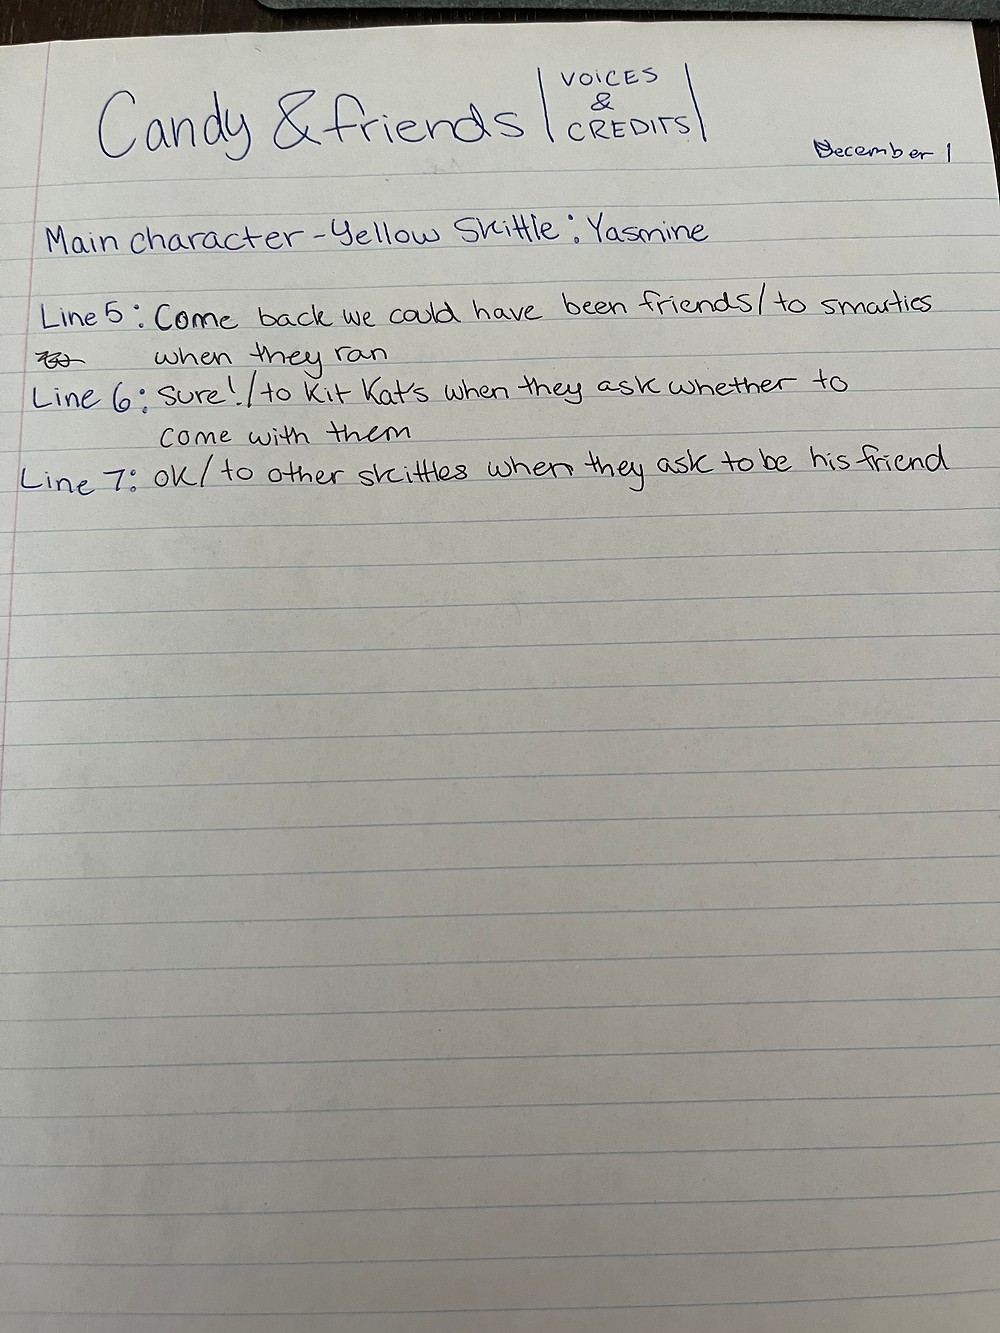 Candy & friends | VOICES & CREDITS |
December 1
Main character - Yellow Skittle : Yasmine
Line 5 : Come back we could have been friends / to smarties
when they ran
Line 6 : Sure! / to Kit Kat's when they ask whether to
come with them
Line 7 : OK / to other skittles when they ask to be his friend